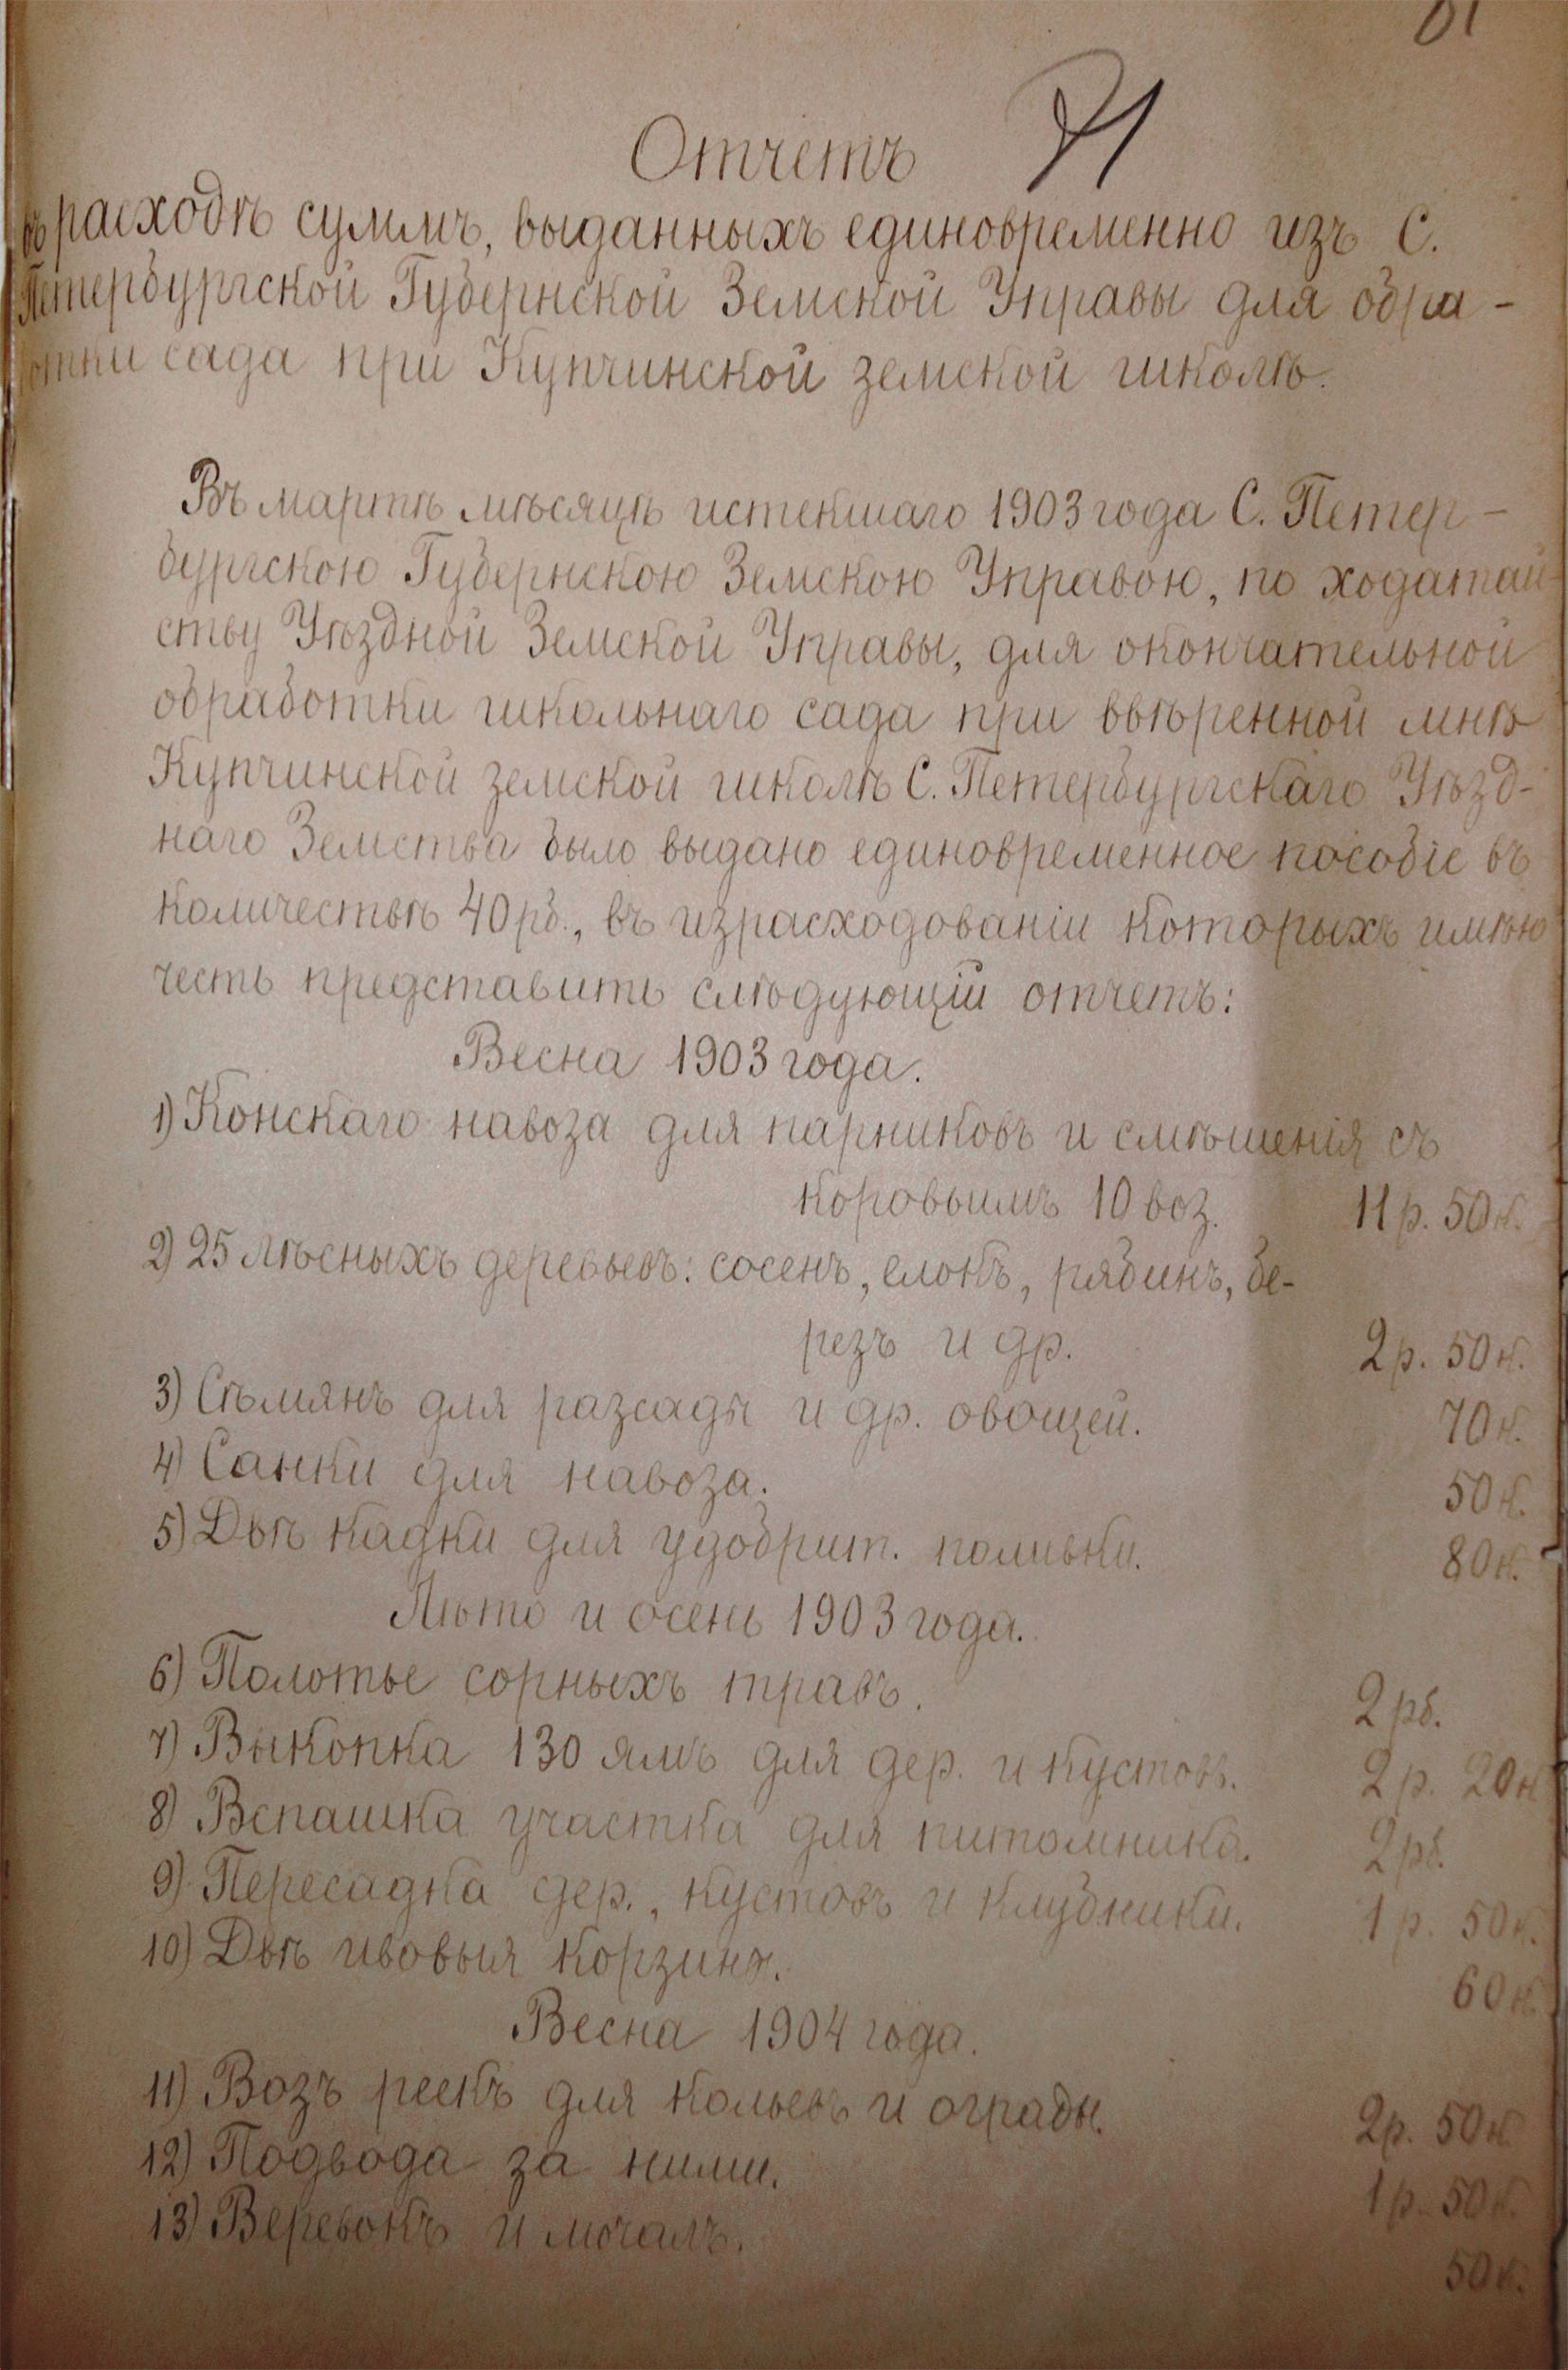 Отчетъ
въ расходѣ суммъ, выданныхъ единовременно изъ С.
Петербургской Губернской Земской Управы для обра-
отки сада при Купчинской земской школѣ.
Въ мартѣ мѣсяцѣ истекшаго 1903 года С. Петер-
бургскою Губернскою Земскою Управою, по ходатай-
ству Уѣздной Земской Управы, для окончательной
обработки школьнаго сада при ввѣренной мнѣ
Купчинской земской школѣ С. Петербургскаго Уѣзд-
наго Земства было выдано единовременное пособіе въ
количествѣ 40 рб., въ израсходованіи которыхъ имѣю
честь представить слѣдующій отчетъ:
Весна 1903 года.
1) Конскаго навоза для парниковъ и смѣшенія съ
коровьимъ 10 воз. 11 р. 50 к.
2) 25 лѣсныхъ деревьевъ: сосенъ, елокъ, рябинъ, бе-
резъ и др. 2 р. 50 к.
3) Сѣмянъ для разсады и др. овощей. 70 к.
4) Санки для навоза. 50 к.
5) Двѣ кадки для удобрит. поливки. 80 к.
Лѣто и осень 1903 года.
6) Полотье сорныхъ травъ. 2 рб.
7) Выкопка 130 ямъ для дер. и кустовъ. 2 р. 20 к
8) Вспашка участка для питомника. 2 рб.
9) Пересадка дер., кустовъ и клубники. 1 р. 50 к.
10) Двѣ ивовыя корзины. 60 к
Весна 1904 года.
11) Возъ реекъ для кольевъ и ограды. 2 р. 50 к.
12) Подвода за ними. 1 р. 50 к.
13) Веревокъ и мочалъ. 50 к.